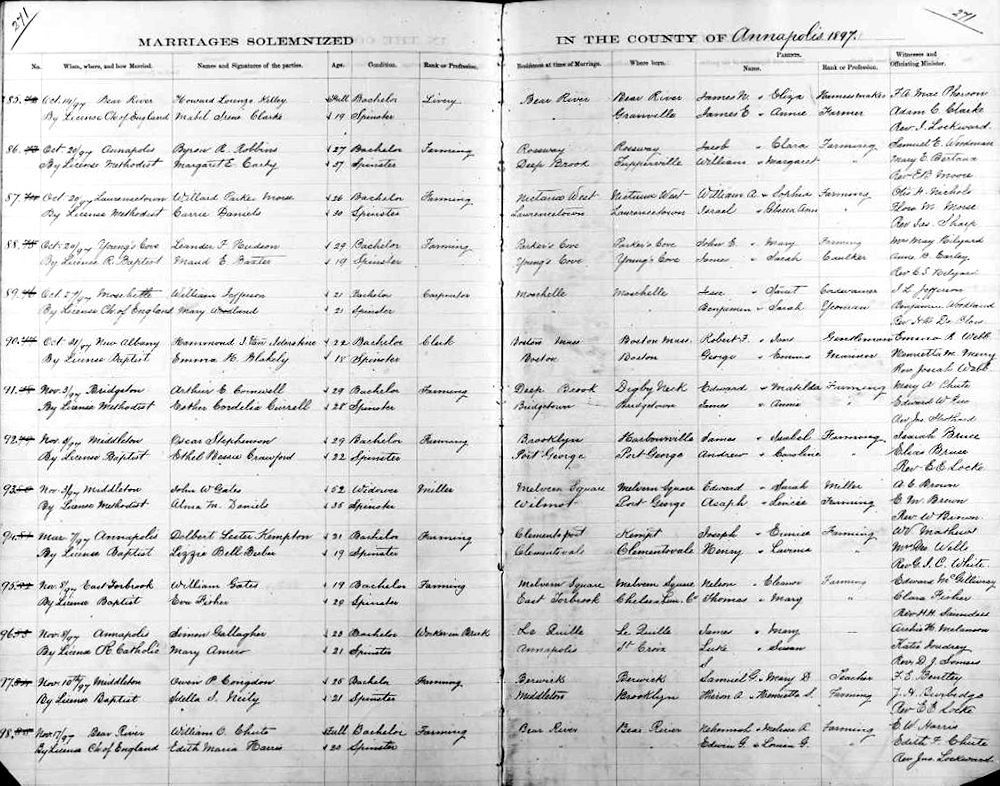 271
271
MARRIAGES SOLEMNIZED IN THE COUNTY OF Annapolis 1897.
No. When, where, and how Married. Names and Signatures of the parties. Age. Condition. Rank or Profession. Residence at time of Marriage. Where born. PARENTS. Name. Rank or Profession. Witnesses and Officiating Minister.
85. Oct 14/97 Bear River Howard Lorenzo Kelley Full Bachelor Livery Bear River Bear River James N. " Eliza Harnessmaker F. A. MacPherson
By License Ch. of England Mabel Irene Clarke 19 Spinster Granville James E " Annie Farmer Adam C. Clarke
Rev J. Lockward
86. Oct 20/97 Annapolis Byron R. Robbins 27 Bachelor Farming Rossway Rossway Jacob " Clara Farming Samuel E. Woodman
By License Methodist Margaret E. 37 Spinster Deep Brook Tupperville William " Margaret " Mary E.
Rev E B Moore
87. Oct 20/97 Lawrencetown Willard Parker Morse 26 Bachelor Farming Nictaux West Nictaux West William A. " Sophia Farming Otis H. Nichols
By License Methodist Carrie Daniels 30 Spinster Lawrencetown Lawrencetown Israel " Ann " Flora M. Morse
Rev Jas. Sharp
88. Oct 20/97 Young's Cove Leander F. Hudson 29 Bachelor Farming Parker's Cove Parker's Cove John E. " Mary Farming Mrs May
By License R. Baptist Maud E Baxter 19 Spinster Young's Cove Young's Cove James " Sarah Caulker
Rev
89. Oct 27/97 Moschelle William Jefferson 21 Bachelor Carpenter Moschelle Moschelle " Cordwainer J. L. Jefferson
By License Ch. of England Mary Woodland 21 Spinster Benjamin " Sarah Yeoman Benjamin Woodland
Rev H.
90. Oct 31/97 New Albany Hammond J. 22 Bachelor Clerk Boston Mass Boston Mass. Robert F. " Jane Gentleman Emma R Webb
By License Baptist Emma H. Blakely 18 Spinster Boston Boston George " Emma Henrietta M. Merry
Rev Josiah Webb
91. Nov. 3/97 Bridgeton Arthur E Cornwell 29 Bachelor Farming Deep Brook Digby Neck Edward " Matilda Farming Mary A Chute
By License Methodist Esther Cordelia Currell 28 Spinster Bridgetown Bridgetown James " Annie " Edward W.
Rev Jno. Strothard
92. Nov. 4/97 Middleton Oscar Stephenson 29 Bachelor Farming Brooklyn Harbourville James " Isabel Farming Isaiah Bruce
By License Baptist Ethel Bessie Crawford 22 Spinster Port George Port George Andrew " Caroline " Elias Bruce
Rev E E Locke
93. Nov. 3/97 Middleton John W Gates 52 Widower Miller Melvern Square Melvern Square Edward " Sarah Miller A. E. Brown
By License Methodist Alma M. Daniels 35 Spinster Wilmot Port George Asaph " Farming E. M. Brown
Rev W Brown
94. Mar 7/97 Annapolis Delbert Lester Kempton 21 Bachelor Farming Clementsport Kempt Joseph " Eunice Farming
By License Baptist Lizzie Bell 19 Spinster Clementsvale Clementsvale Henry " Lavinia " Wells
Rev G. J. C. White
95. Nov. 8/97 East Torbrook William Gates 19 Bachelor Farming Melvern Square Melvern Square Nelson " Eleanor Farming Edward McGillivray
By License Baptist Eva Fisher 29 Spinster East Torbrook Chelsea Lun. Co Thomas " Mary " Clara Fisher
Rev H.H. Saunders
96. Nov. 8/97 Annapolis Simon Gallagher 23 Bachelor Worker in Brick Le Quille Le Quille James " Mary — Archie H. Melanson
By License R Catholic Mary Amiro 21 Spinster Annapolis St Croix Luke " Susan Katie
Rev. D. J. Somers
97. Nov. 10th/97 Middleton Owen P. Congdon 25 Bachelor Farming Berwick Berwick Samuel G. " Mary D Teacher F. E. Bentley
By License Baptist Idella S. Neily 21 Spinster Middleton Brooklyn Heron A. " Henrietta S. Farming J. H.
Rev E E Locke
98. Nov. 17/97 Bear River William C. Chute Full Bachelor Farming Bear River Bear River Nehemiah " Melissa A Farming E. W. Harris
By License Ch of England Edith Maria Harris 20 Spinster Edwin G. " Louisa G. " Edith F. Chute
Rev Jno. Lockward